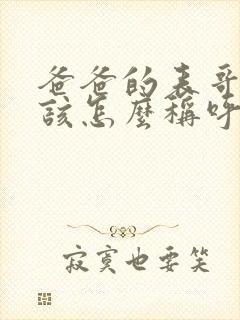 爸爸的表哥
該怎麼稱呼
寂寞也要笑